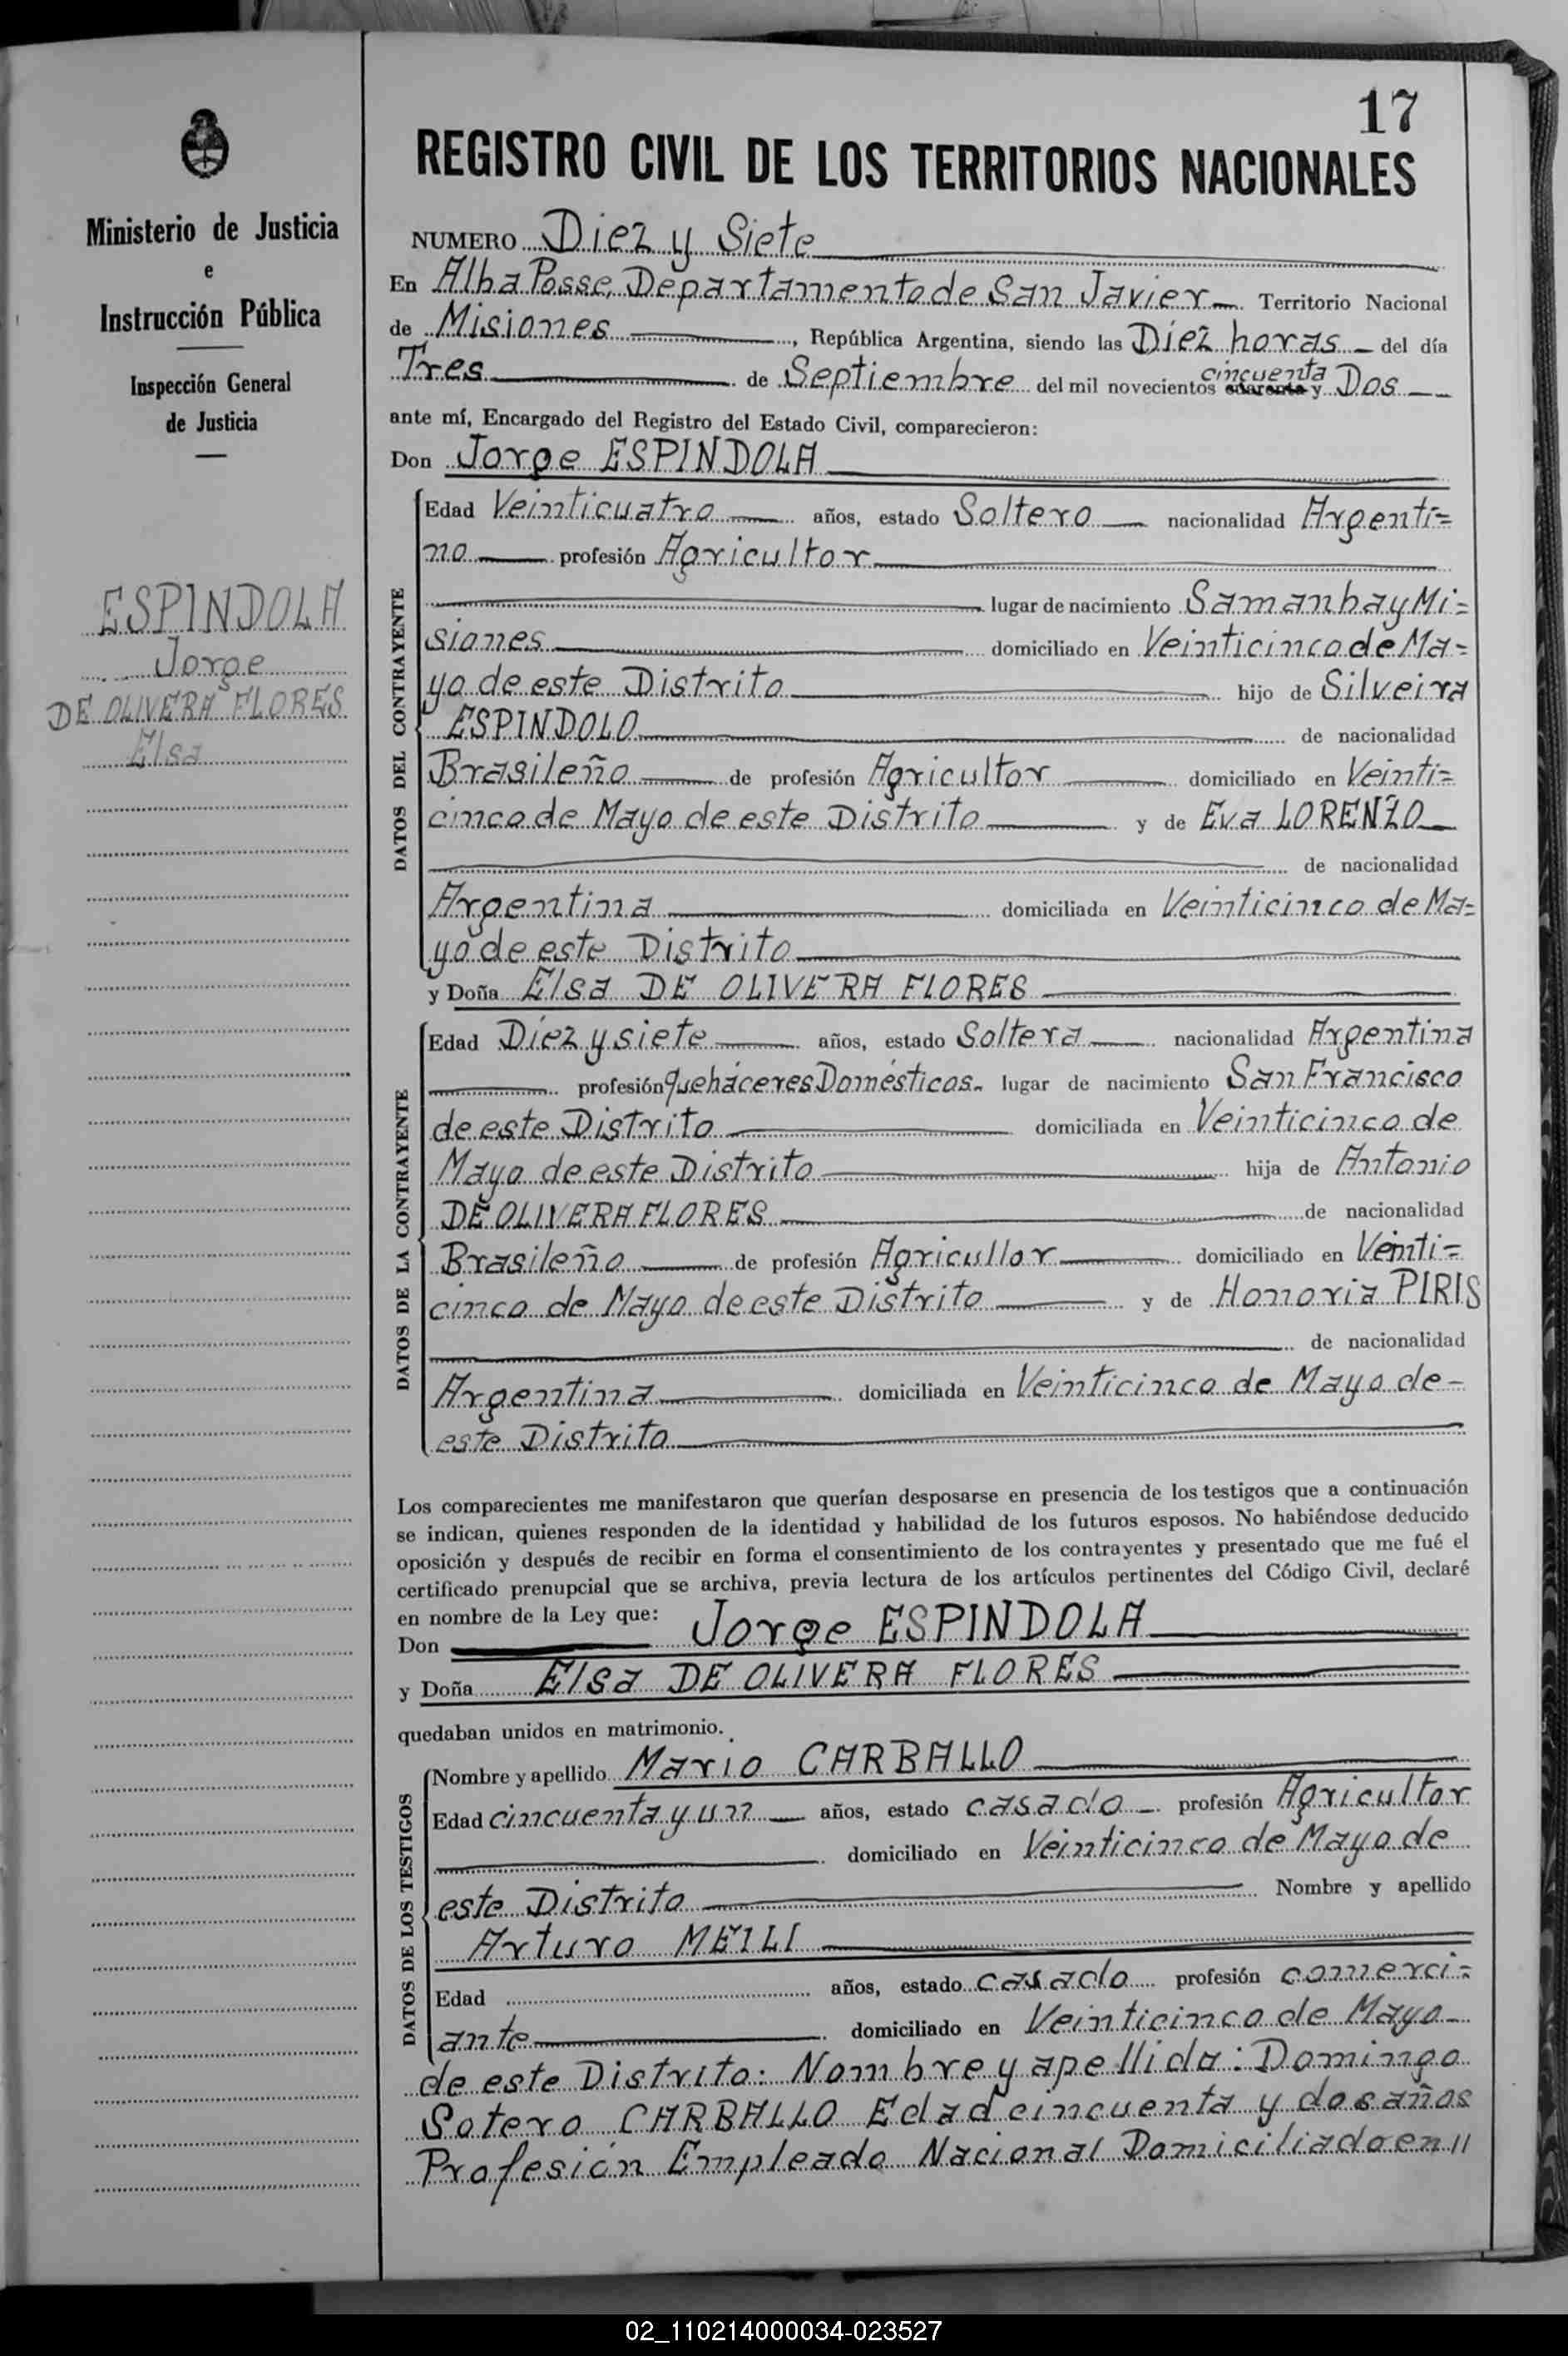 17
REGISTRO CIVIL DE LOS TERRITORIOS NACIONALES
Ministerio de Justicia
e
Instrucción Pública
Inspección General
de Justicia
ESPINDOLA
Jorge
DE OLIVERA FLORES
Elsa
NUMERO Diez y Siete
En Alba Posse, Departamento de San Javier Territorio Nacional
de Misiones, República Argentina, siendo las Diez horas del día
Tres de Septiembre del mil novecientos cincuenta y Dos
ante mí, Encargado del Registro del Estado Civil, comparecieron:
Don Jorge ESPINDOLA
DATOS DEL CONTRAYENTE
Edad Veinticuatro años, estado Soltero nacionalidad Argenti=
no profesión Agricultor
lugar de nacimiento Samanbay Mi=
siones domiciliado en Veinticinco de Ma=
yo de este Distrito hijo de Silveira
ESPINDOLO de nacionalidad
Brasileño de profesión Agricultor domiciliado en Veinti=
cinco de Mayo de este Distrito y de Eva LORENZO
de nacionalidad
Argentina domiciliada en Veinticinco de Ma=
yo de este Distrito
y Doña Elsa DE OLIVERA FLORES
DATOS DE LA CONTRAYENTE
Edad Diez y siete años, estado Soltera nacionalidad Argentina
profesión quehaceres Domésticos lugar de nacimiento San Francisco
de este Distrito domiciliada en Veinticinco de
Mayo de este Distrito hija de Antonio
DE OLIVERA FLORES de nacionalidad
Brasileño de profesión Agricultor domiciliado en Veinti=
cinco de Mayo de este Distrito y de Honoria PIRIS
de nacionalidad
Argentina domiciliada en Veinticinco de Mayo de-
este Distrito
Los comparecientes me manifestaron que querían desposarse en presencia de los testigos que a continuación
se indican, quienes responden de la identidad y habilidad de los futuros esposos. No habiéndose deducido
oposición y después de recibir en forma el consentimiento de los contrayentes y presentado que me fué el
certificado prenupcial que se archiva, previa lectura de los artículos pertinentes del Código Civil, declaré
en nombre de la Ley que:
Don Jorge ESPINDOLA
y Doña Elsa DE OLIVERA FLORES
quedaban unidos en matrimonio.
DATOS DE LOS TESTIGOS
Nombre y apellido Mario CARBALLO
Edad cincuenta y un años, estado casado profesión Agricultor
domiciliado en Veinticinco de Mayo de
este Distrito Nombre y apellido
Arturo MEILI
Edad años, estado casado profesión comerci=
ante domiciliado en Veinticinco de Mayo
de este Distrito: Nombre y apellido: Domingo
Sotero CARBALLO Edad cincuenta y dos años
Profesión Empleado Nacional Domiciliado en //
02_110214000034-023527